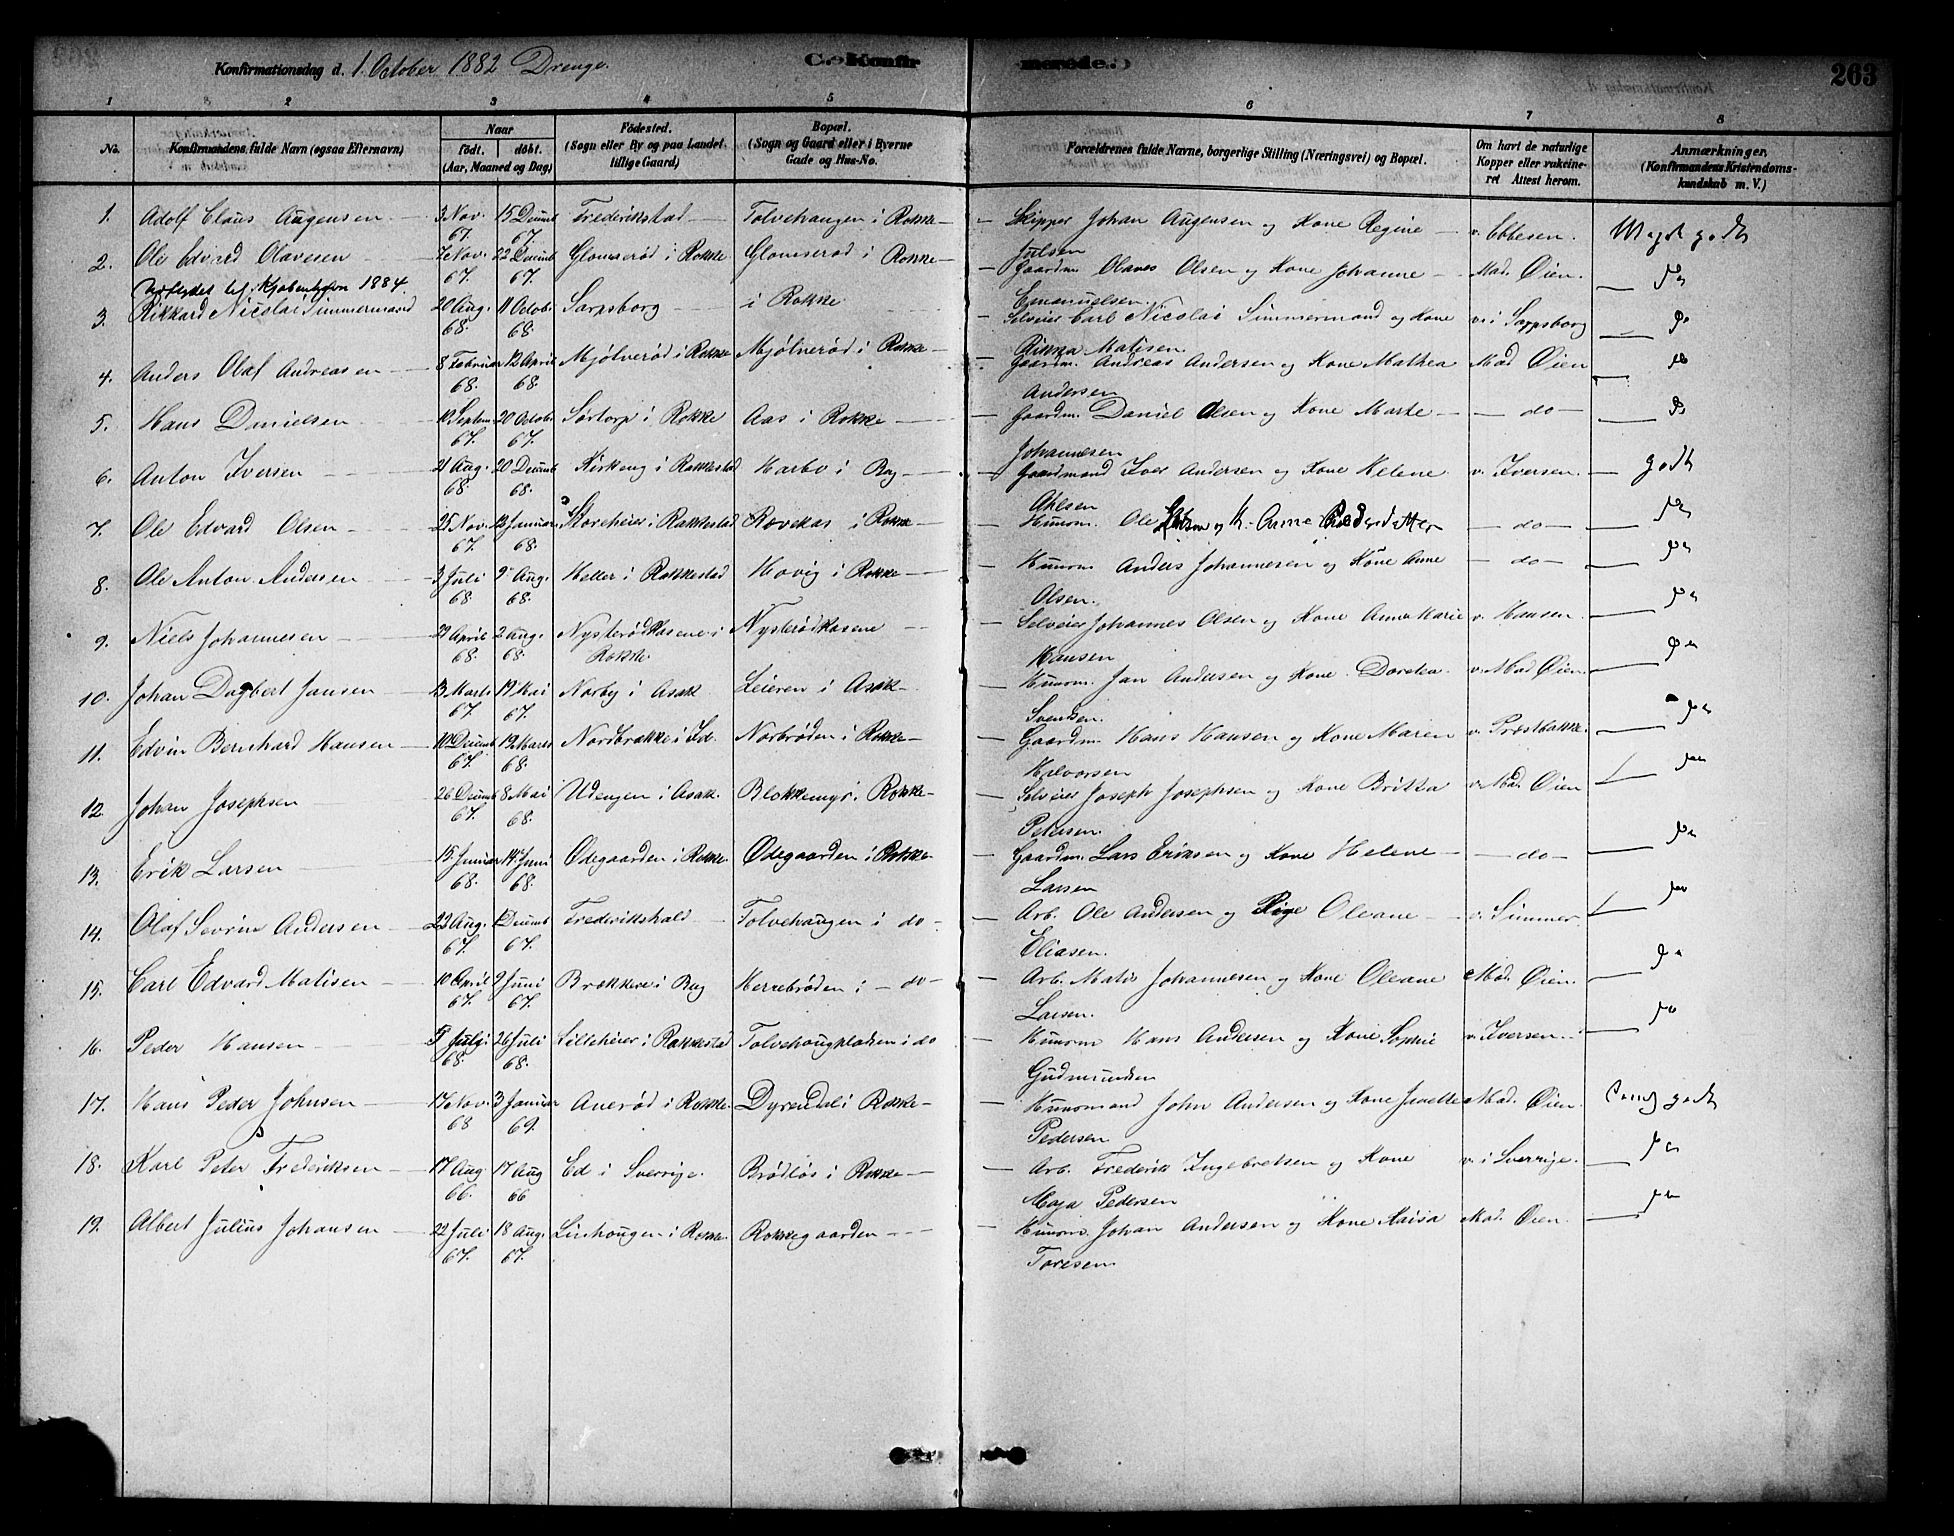 Konfirmationsdag d. 1 October 1882 Drenge. Konfirmerede. 263
1 2 3 4 5 6 7 8
No. Konfirmandens fulde Navn (ogsaa Efternavn) Naar født. døbt. (Aar, Maaned og Dag) Fødested. (Sogn eller By og paa Landet tillige Gaard) Bopæl. (Sogn og Gaard eller i Byerne Gade og Hus-No. Forældrenes fulde Navne, borgerlige Stilling (Næringsvei) og Bopæl. Om havt de naturlige Kopper eller vakcineret Attest herom. Anmærkninger, (Konfirmandens Kristendomskundskab m. V.)
1. Adolf Claus Augensen 3 Nov. 67 15 Decemb 67. Frederikstad Tolvehaugen i Rokke Skipper Johan Augensen og Kone Regine v. Ebbesen. Meget godt
Julsen
2. Ole Edvard Olavesen 7 Nov. 67. 22 Decemb 67. Glomserød i Rokke Glomserød i Rokke Gaardm. Olaves Olsen og Kone Johanne Mad. Øien. do
Emanuelsen.
Kjøbenhavn 1884
3. Rikkard Nicolai Simmermand 20 Aug. 68. 11 Octob. 68. Sarpsborg i Rokke Selveier Carl Nicolai Simmermand og Kone v. i Sarpsborg do
Rikka Matisen.
4. Anders Olaf Andreasen 8 Februar 68. 12 April 68. Mjølnerød i Rokke Mjølnerød i Rokke Gaardm. Andreas Andersen og Kone Mathea Mad Øien do
Andersen
5. Hans Danielsen 10 Septem. 67. 20 Octob. 67. Sortorp i Rokke Aas i Rokke Gaardm. Daniel Olsen og Kone Marte do do
Johannesen
6. Anton Iversen 21 Aug. 68. 20 Decemb 68. Kirkeng i Rakkestad Harbo i Bag Gaardmand Iver Andersen og Kone Helene v. Iversen. godt
Ahlsen
7. Ole Edvard Olsen 25 Nov. 67. 12 Januar 68. Skoreheier i Rakkestad Rævekas i Rokke Husm. Ole og K. Anne Pedersdatter do do
8. Ole Anton Andersen 3 Juli 68. 9 Aug. 68. Heller i Rakkestad Hovig i Rokke Husm Anders Johannesen og Kone Anne do do
Olsen.
9. Niels Johannesen 29 April 68. 2 Aug. 68. Nysterødkasene i Rokke. Nysterødkasene Selveier Johannes Olsen og Kone Anne Marie v. Hansen do
Hansen
10. Johan Dagbert Jansen 13 Marts 67. 19 Mai 67. Norby i Asak Leieren i Asak Husm. Jan Andersen og Kone Dorthea v. Mad Øien. do
Svendsen.
11. Edvin Bernhard Hansen 10 Decemb 67. 19 Marts 68. Nordbrække i Id. Norbrøden i Rokke Gaardm. Hans Hansen og Kone Maren v. Præstbakke do
Halvorsen
12. Johan Josephsen 26 Decemb 67. 8 Mai 68. Udengen i Asak. Blokkemyr i Rokke Selveier Joseph Josephsen og Kone Brikka v. Mad. Øien do
Petersen.
13. Erik Larsen 15 Januar 68. 14 Juni 68. Ødegaarden i Rokke Ødegaarden i Rokke Gaardm. Lars Eriksen og Kone Helene do do
Larsen
14. Olaf Sevrin Andersen 23 Aug. 67. 1 Decemb 67. Frederikshald Tolvehaugen i do Arb. Ole Andersen og Pige Oleane v. Simmer do
Eliasen.
15. Carl Edvard Matisen 10 April 67. 9 Juni 67. Brekkere i Bag Herrebrøden i do Arb. Matis Johannesen og Kone Oleane Mad. Øien. do
Larsen.
16. Peder Hansen 5 Juli 68. 26 Juli 68. Lilleheier i Rakkestad Tolvehougpladsen i do Husm Hans Andersen og Kone Sophie v. Iversen. do
Gudmundsen
17. Hans Peder Johnsen 17 Nov. 68 3 Januar 69. Anerød i Rokke. Dyrendal i Rokke Husmand John Andersen og Kone Mad. Øien. godt
Pedersen
18. Karl Peter Frederiksen 17 Aug 66. 17 Aug 66 Ed i Sverrige. Brødløs i Rokke Arb. Frederik Ingebretsen og Kone v. i Sverrige. do
Maja Pedersen
19. Albert Julius Johansen 22 Juli 67. 18 Aug. 67. Linhougen i Rokke. Rokkegaarden Husm. Johan Andersen og Kone Kaisa Mad. Øien. do
Toresen